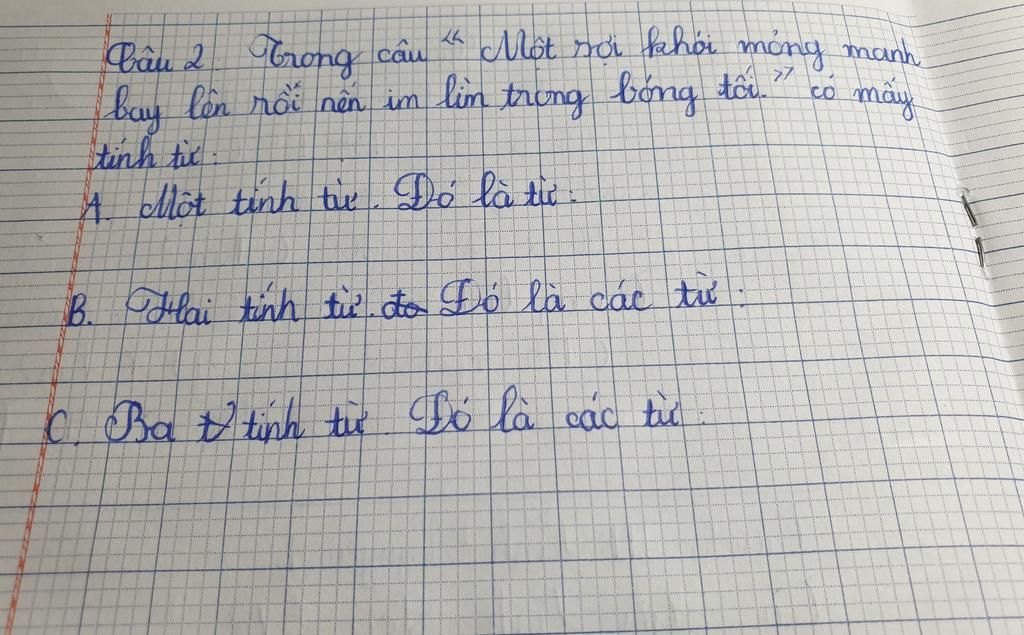 Câu 2 Trong câu " Một sợi khói mỏng manh
bay lên rồi nến im lìm trong bóng tối." có mấy
tính từ:
A. Một tính từ. Đó là từ:
B. Hai tính từ. đo Đó là các từ:
C. Ba t tính từ. Đó là các từ: